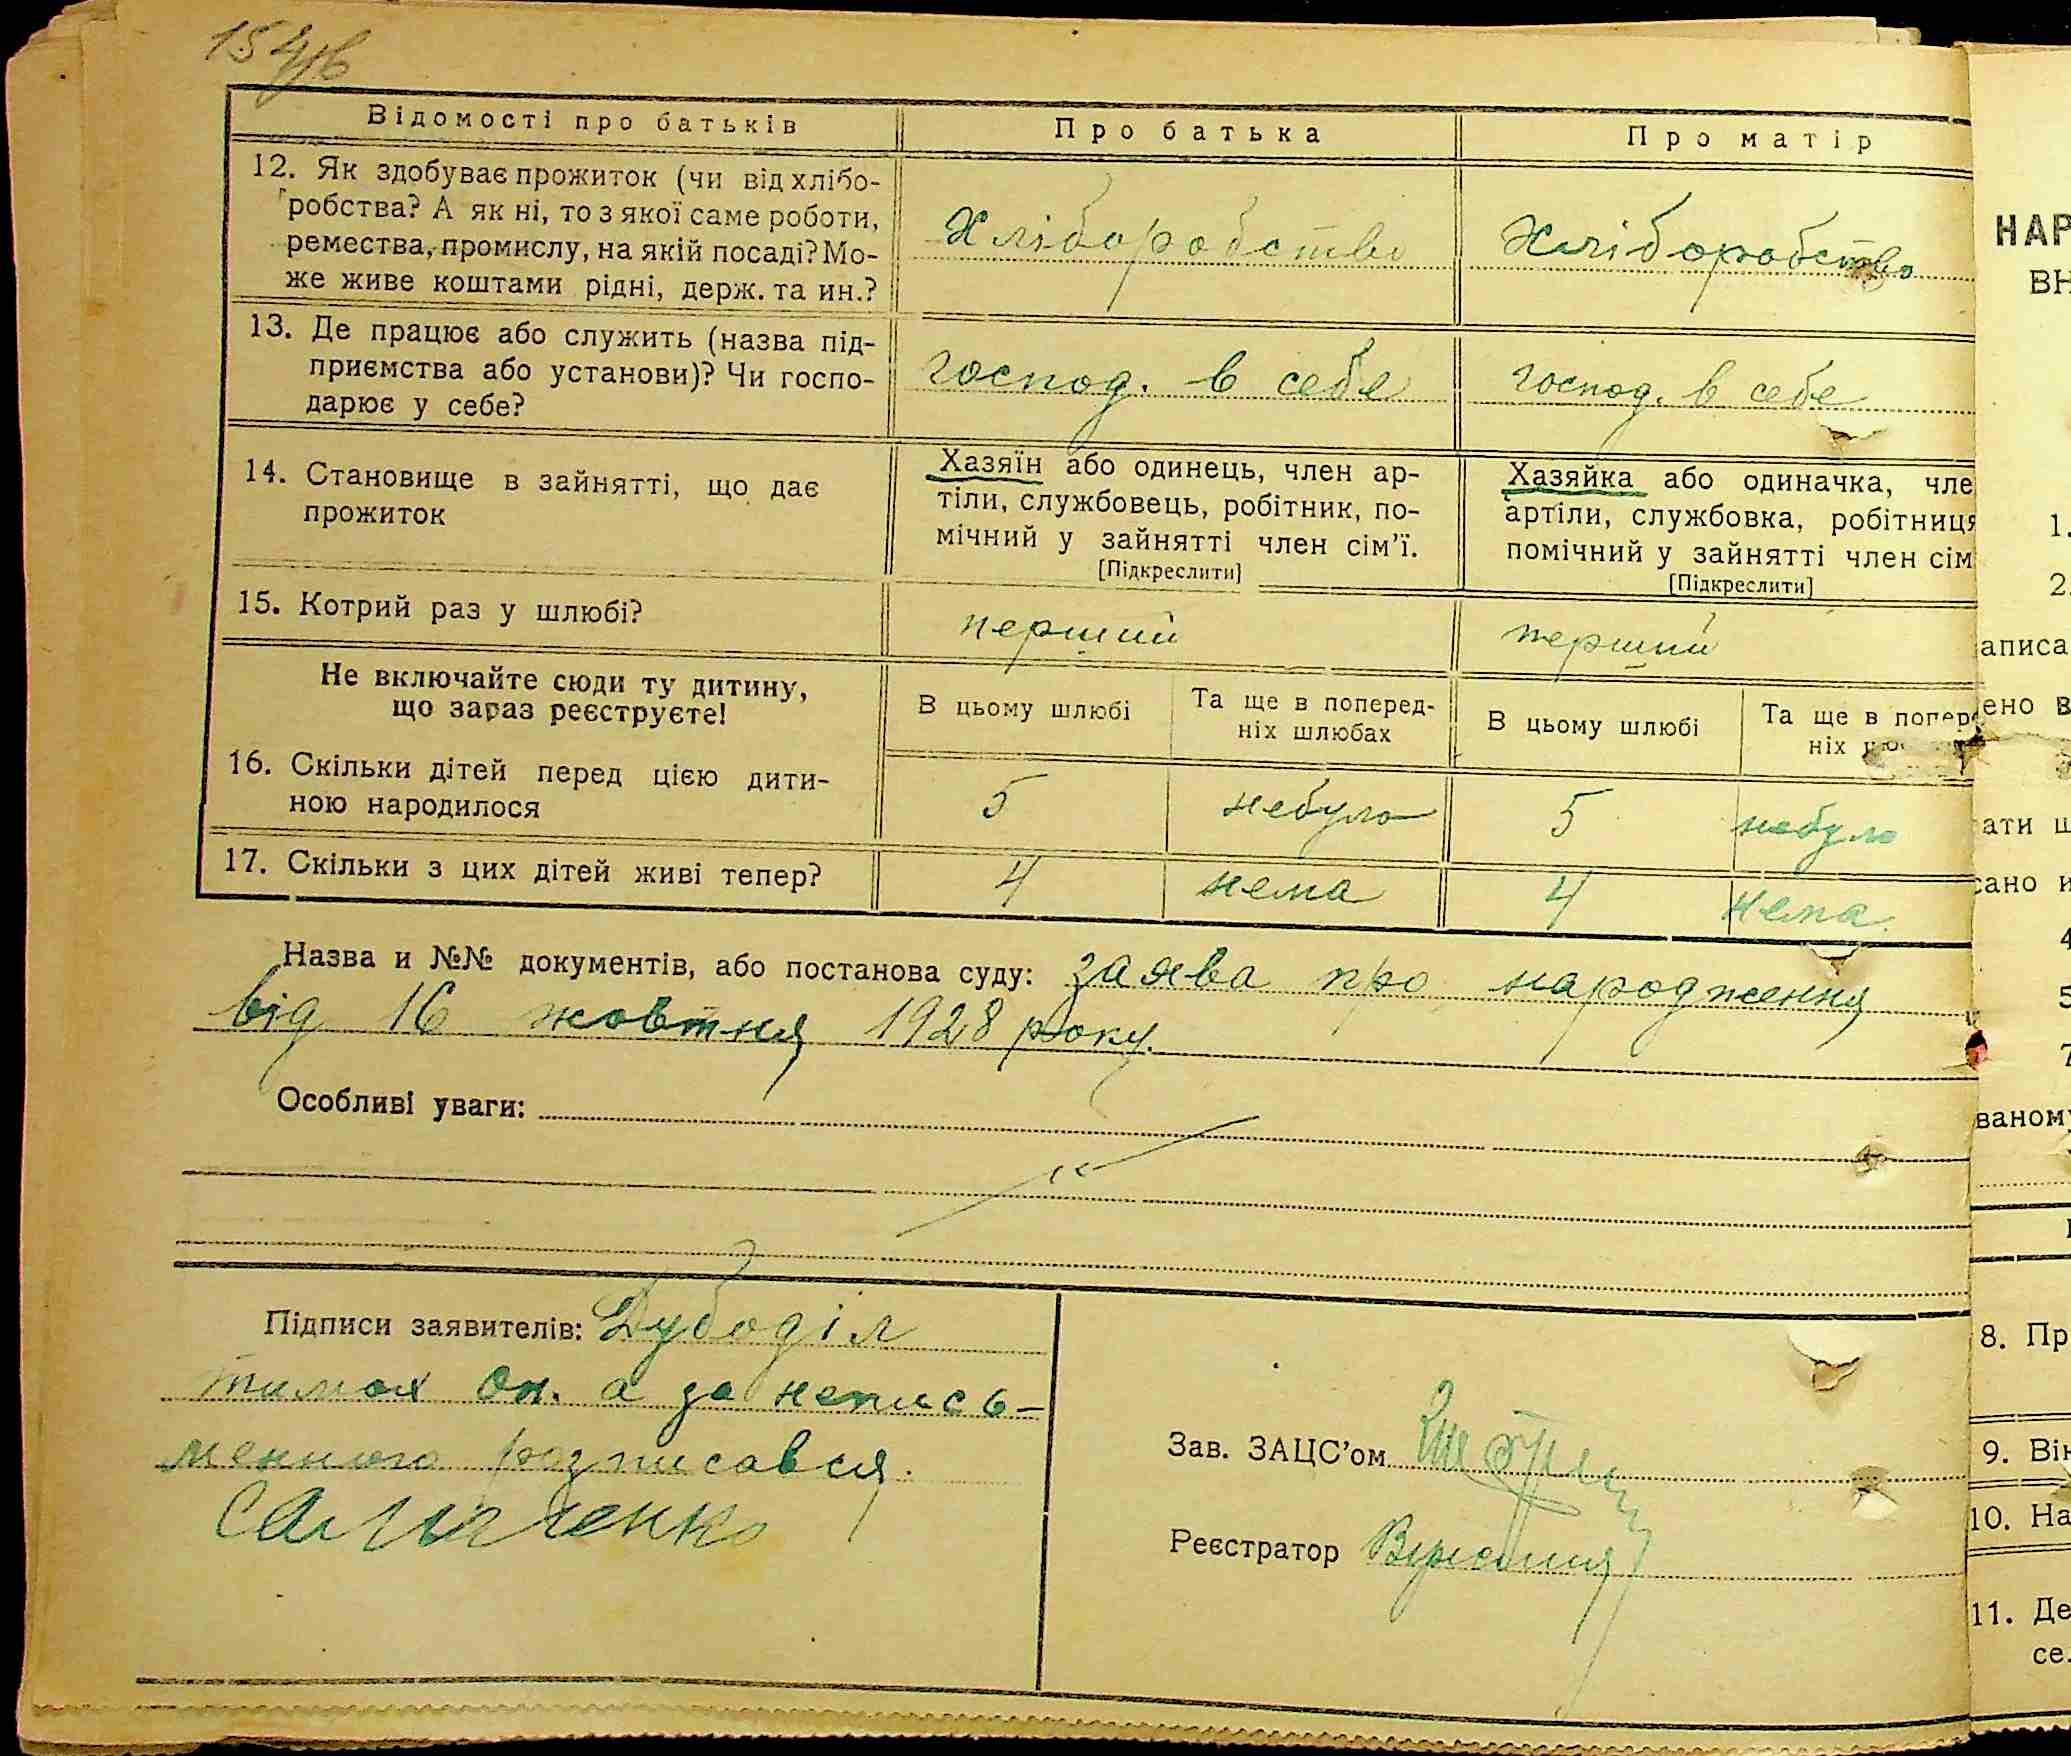 154/в
Відомості про батьків
Про батька
Про матір
12. Як здобуває прожиток (чи від хлібо-
робства? А як ні, то з якої саме роботи,
ремества, промислу, на якій посаді? Мо-
же живе коштами рідні, держ. та ин.?
Хліборобство
Хліборобство
13. Де працює або служить (назва під-
приємства або установи)? Чи госпо-
дарює у себе?
господ. в себе
господ. в себе
14. Становище в зайнятті, що дає
прожиток
Хазяїн або одинець, член ар-
тіли, службовець, робітник, по-
мічний у зайнятті член сім'ї.
[Підкреслити]
Хазяйка або одиначка, чле
артіли, службовка, робітниця
помічний у зайнятті член сім
[Підкреслити]
15. Котрий раз у шлюбі?
перший
перший
Не включайте сюди ту дитину,
що зараз реєструєте!
В цьому шлюбі
Та ще в поперед-
ніх шлюбах
В цьому шлюбі
Та ще в попер
ніх
16. Скільки дітей перед цією дити-
ною народилося
5
небуло
5
небуло
17. Скільки з цих дітей живі тепер?
4
нема
4
нема
Назва и №№ документів, або постанова суду: заява про народження
від 16 жовтня 1928 року.
Особливі уваги:
Підписи заявителів: Дубоділ
тимох Он. а за непись-
менного розписався.
Зав. ЗАЦС'ом
Реєстратор
НАР
ВН
1.
2.
аписа
ено в
ати ш
сано и
4
5
7
ваному
8. Пр
9. Вік
10. На
11. Де
се.